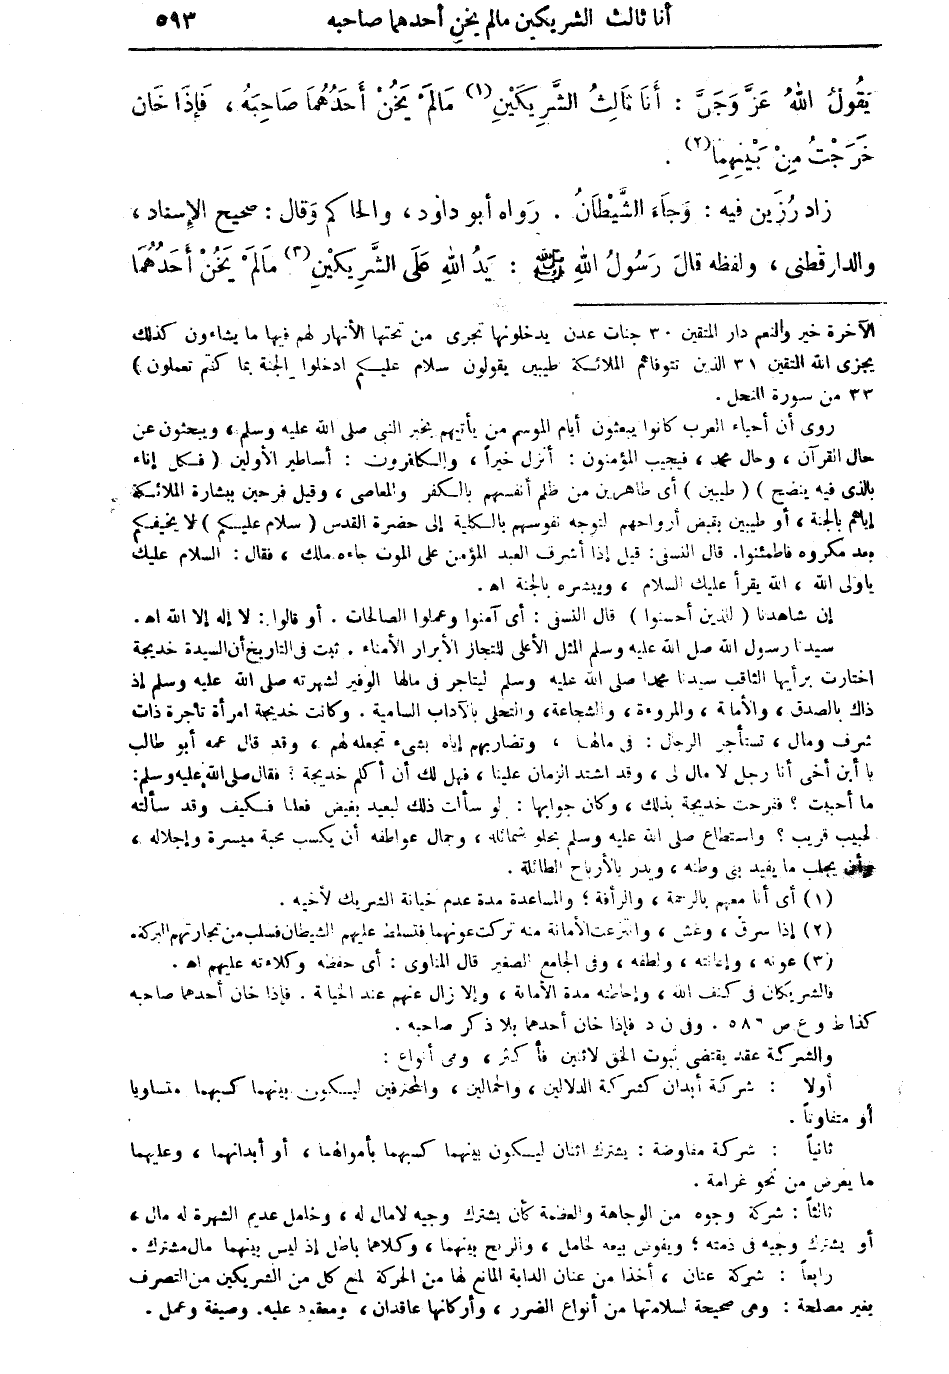 أنا ثالث الشريكين مالم يخن أحدهما صاحبه ٥٩٣
يَقُولُ اللهُ عَزَّ وَجَلَّ : أَنَا ثَالِثُ الشَّرِيكَيْنِ(١) مَالَمْ يَخُنْ أَحَدُهُمَا صَاحِبَهُ ، فَإِذَا خَانَ
خَرَجْتُ مِنْ بَيْنِهِمَا(٢) .
زاد رُزَين فيه : وَجَاءَ الشَّيْطَانُ . رَواه أبو داود ، والحاكم وَقال : صحيح الإِسناد ،
والدارقطنى ، ولفظه قالَ رَسُولُ اللهِ ﷺ : يَدُ اللهِ عَلَى الشَّرِيكَيْنِ(٣) مَالَمْ يَخُنْ أَحَدُهُمَا
الآخرة خير ولنعم دار المتقين ٣٠ جنات عدن يدخلونها تجرى من تحتها الأنهار لهم فيها ما يشاءون كذلك
يجزى الله المتقين ٣١ الذين تتوفاهم الملائكة طيبين يقولون سلام عليكم ادخلوا الجنة بما كنتم تعملون )
٣٣ من سورة النحل .
روى أن أحياء العرب كانوا يبعثون أيام الموسم من يأتيهم بخبر النبى صلى الله عليه وسلم ، ويبحثون عن
حال القرآن ، وحال محمد ، فيجيب المؤمنون : أنزل خيراً ، والكافرون : أساطير الأولين ( فكل إناء
بالذى فيه ينضح ) ( طيبين ) أى طاهرين من ظلم أنفسهم بالكفر والمعاصى ، وقيل فرحين ببشارة الملائكة
إياهم بالجنة ، أو طيبين بقبض أرواحهم لتوجه نفوسهم بالكلية إلى حضرة القدس ( سلام عليكم ) لا يخيفكم
بعد مكروه فاطمئنوا. قال النسفى: قيل إذا أشرف العبد المؤمن على الموت جاءه ملك ، فقال : السلام عليك
ياولى الله ، الله يقرأ عليك السلام ، ويبشره بالجنة اهـ.
إن شاهدنا ( للذين أحسنوا ) قال النسفى : أى آمنوا وعملوا الصالحات . أو قالوا: لا إله إلا الله اهـ.
سيدنا رسول الله صلى الله عليه وسلم المثل الأعلى للتجار الأبرار الأمناء . ثبت فى التاريخ أن السيدة خديجة
اختارت برأيها الثاقب سيدنا محمدا صلى الله عليه وسلم ليتاجر فى مالها الوفير لشهرته صلى الله عليه وسلم إذ
ذاك بالصدق ، والأمانة ، والمروءة ، والشجاعة، والتحلى بالآداب السامية . وكانت خديجة امرأة تاجرة ذات
شرف ومال ، تستأجر الرجال : فى مالها ، وتضاربهم إياه بشىء تجعله لهم ، وقد قال عمه أبو طالب
يا أبن أخى أنا رجل لا مال لى ، وقد اشتد الزمان علينا ، فهل لك أن أكلم خديجة ؟ فقال صلى الله عليه وسلم:
ما أحببت ؟ ففرحت خديجة بذلك ، وكان جوابها : لو سألت ذلك لبعيد بغيض فعلنا فكيف وقد سألته
لحبيب قريب ؟ واستطاع صلى الله عليه وسلم بحلو شمائله ، وجمال عواطفه أن يكسب محبة ميسرة وإجلاله ،
وأن يجلب ما يفيد بنى وطنه ، ويدر بالأرباح الطائلة .
(١) أى أنا معهم بالرحمة ، والرأفة ؛ والمساعدة مدة عدم خيانة الشريك لأخيه .
(٢) إذا سرق ، وغش ، وانتزعت الأمانة منه تركت عونهما فتسلط عليهم الشيطان فسلب من تجارتهم البركة.
(٣) عونه ، وإعانته ، ولطفه ، وفى الجامع الصغير قال المناوى : أى حفظه وكلاءته عليهم اهـ .
فالشريكان فى كنف الله ، وإحاطته مدة الأمانة ، وإلا زال عنهم عند الخيانة . فإذا خان أحدهما صاحبه
كذا ط و ع ص ٥٨٦ . وفى ن د فإذا خان أحدهما بلا ذكر صاحبه .
والشركة عقد يقتضى ثبوت الحق لاثنين فأكثر ، وهى أنواع :
أولا : شركة أبدان كشركة الدلالين ، والحمالين ، والمحترفين ليكون بينهما كسبهما متساويا
أو متفاوتاً .
ثانياً : شركة مفاوضة : يشترك اثنان ليكون بينهما كسبهما بأموالهما ، أو أبدانهما ، وعليهما
ما يعرض من نحو غرامة .
ثالثاً : شركة وجوه من الوجاهة والعظمة كأن يشترك وجيه لامال له ، وخامل عديم الشهرة له مال ،
أو يشترك وجيه فى ذمته ؛ ويفوض بيعه لخامل ، والربح بينهما ، وكلاهما باطل إذ ليس بينهما مال مشترك .
رابعاً : شركة عنان ، أخذا من عنان الدابة المانع لها من الحركة لمنع كل من الشريكين من التصرف
بغير مصلحة : وهى صحيحة لسلامتها من أنواع الضرر ، وأركانها عاقدان ، ومعقود عليه، وصيغة وعمل .